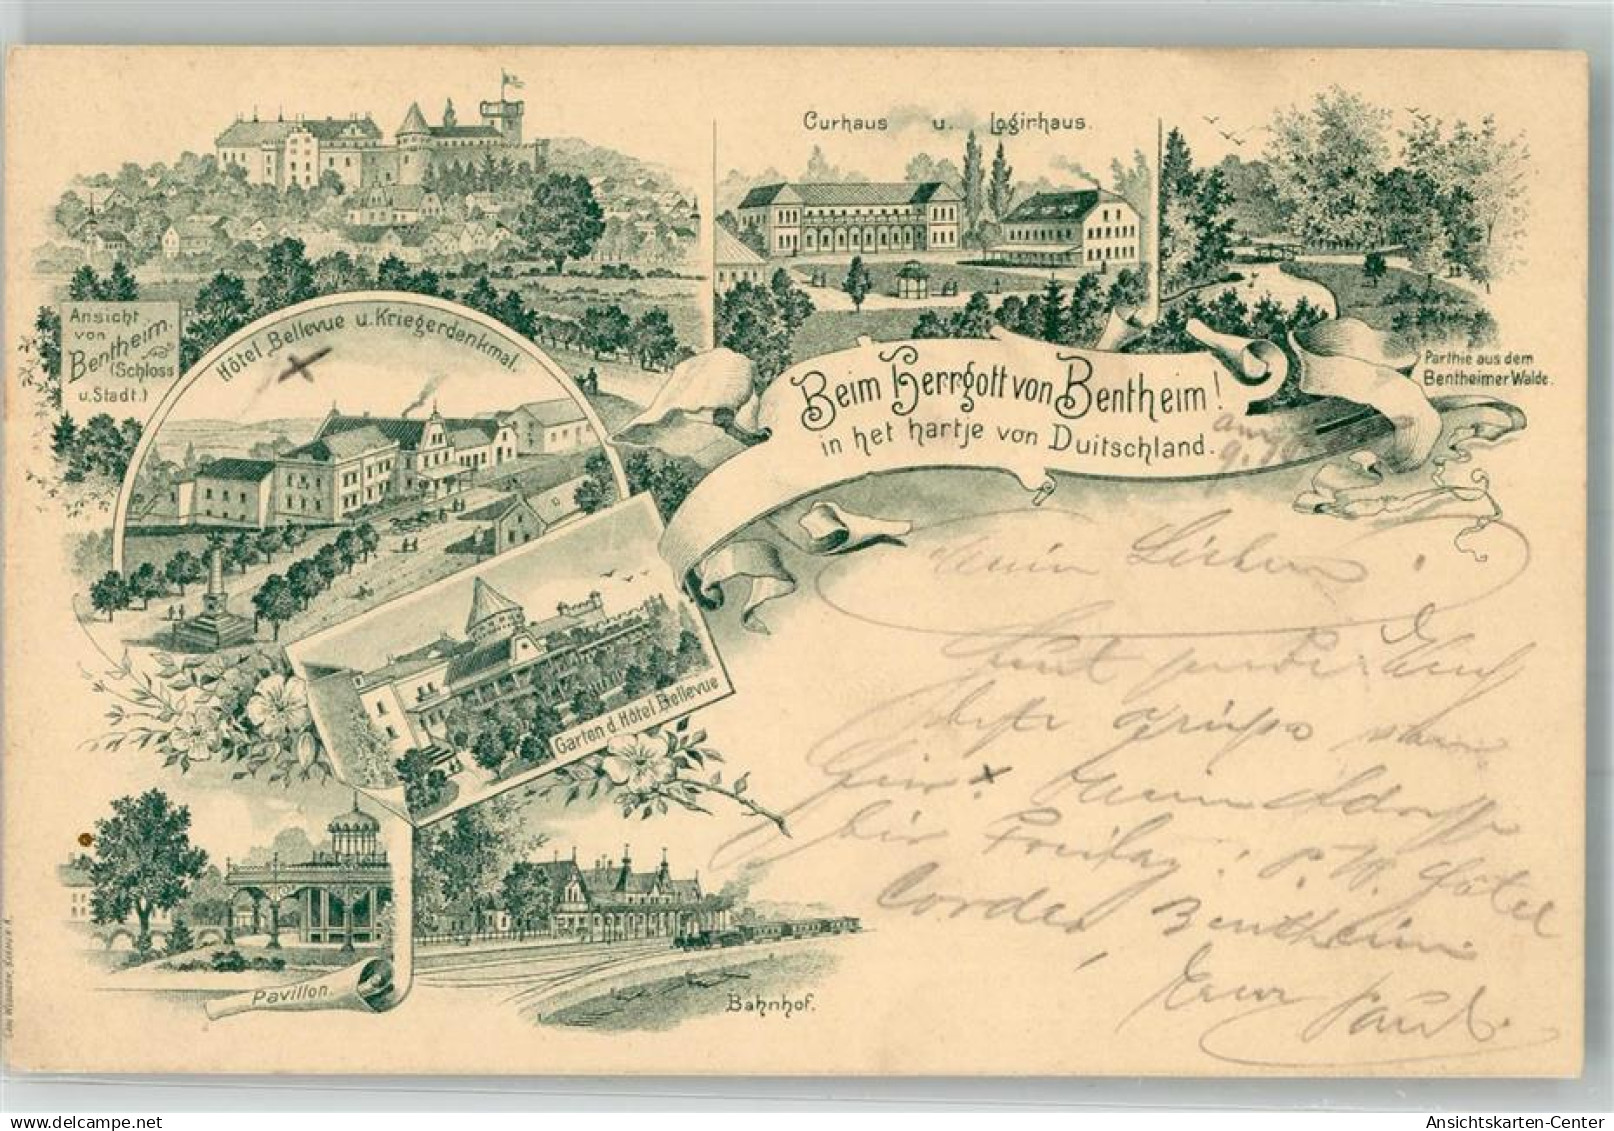 Ansicht
von
Bentheim.
(Schloss
u. Stadt.)
Curhaus u. Logirhaus.
Parthie aus dem
Bentheimer Walde.
Hôtel Bellevue u. Kriegerdenkmal.
Beim Herrgott von Bentheim!
in het hartje von Duitschland.
Garten d. Hôtel Bellevue
Pavillon.
Bahnhof.
Meine Lieben!
Grüße
Hier x Meine Adresse
bis Freitag: P. W. Hôtel
Cordes Bentheim
Euer Paul.
delcampe.net
Ansichtskarten-Center